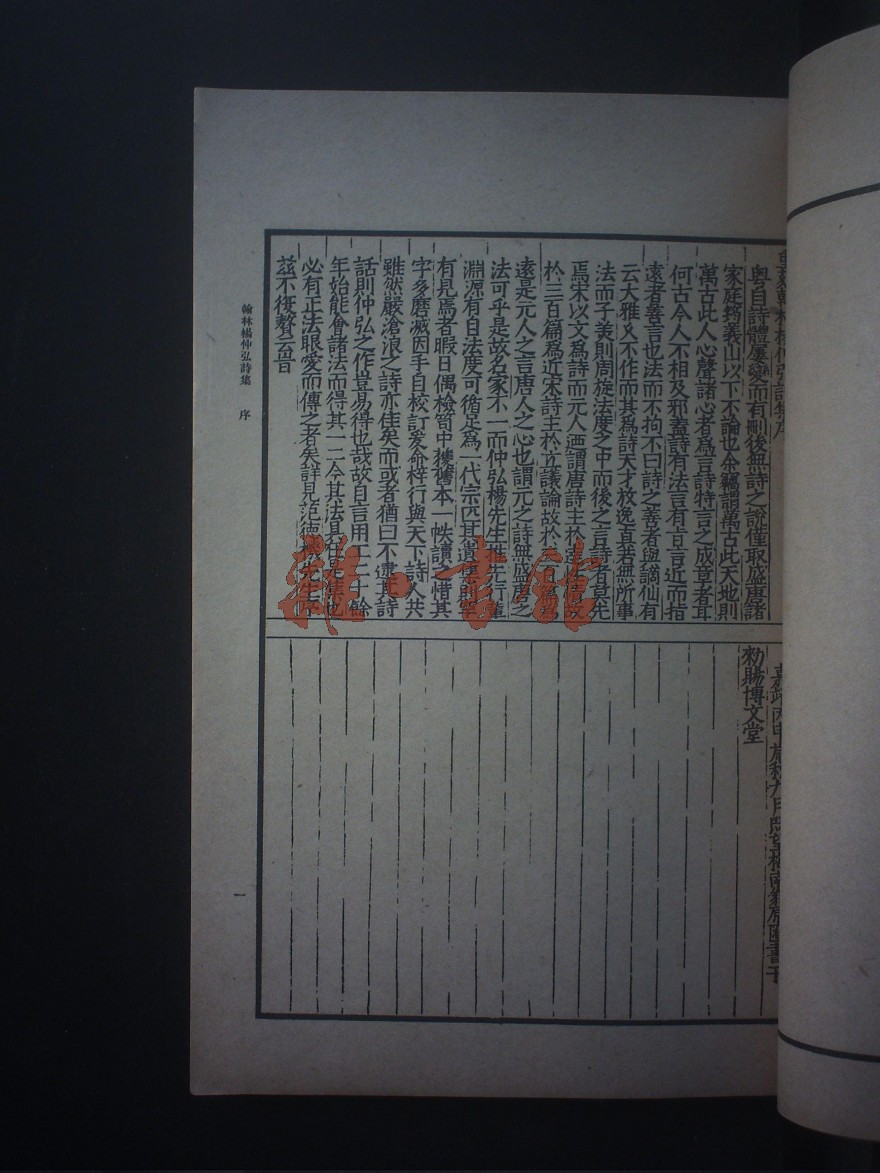 翰林楊仲弘詩集序
粵自詩體屢變而有刪後無詩之說僅取盛唐諸
家庭筠義山以下不論也余竊謂萬古此天地則
萬古此人心聲諸心者爲言詩特言之成章者耳
何古今人不相及邪蓋詩有法言有旨言近而指
遠者善言也法而不拘不曰詩之善者與謫仙有
云大雅久不作而其爲詩天才放逸直若無所事
法而子美則周旋法度之中而後之言詩者莫先
焉宋以文爲詩而元人迺謂唐詩主於
於三百篇爲近宋詩主於立議論故於三百篇爲
遠是元人之言唐人之心也謂元之詩無盛唐之
法可乎是故名家不一而仲弘楊先生
淵源有自法度可循足爲一代宗匠其遺
有見焉者暇日偶檢笥中獲舊本一帙讀之惜其
字多磨滅因手自校訂爰命梓行與天下詩人共
雖然嚴滄浪之詩亦佳矣而或者猶曰不盡其詩
話則仲弘之作豈易得也哉故自言用工二十餘
年始能會諸法而得其一二今其法具在是集也
必有正法眼愛而傳之者矣詳見范德機先生
茲不復贅云昔
嘉靖丙申菊秋九月既望梅南書于
勑賜博文堂
翰林楊仲弘詩集 序
一
雜·書館